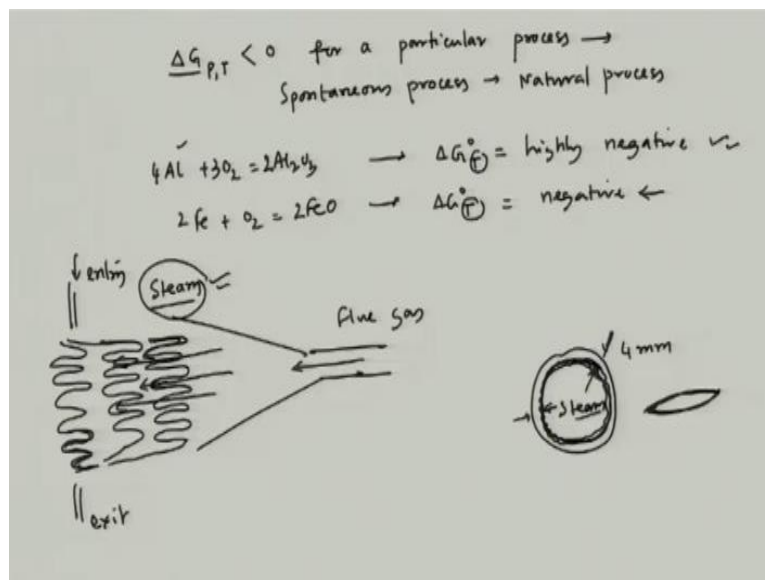 ΔG P,T < 0 for a particular process →
Spontaneous process → Natural process
4Al + 3O2 = 2Al2O3 → ΔG°(T) = highly negative
2Fe + O2 = 2FeO → ΔG°(T) = negative ←
↓ entry
Steam
Flue gas
4 mm
←Steam
exit